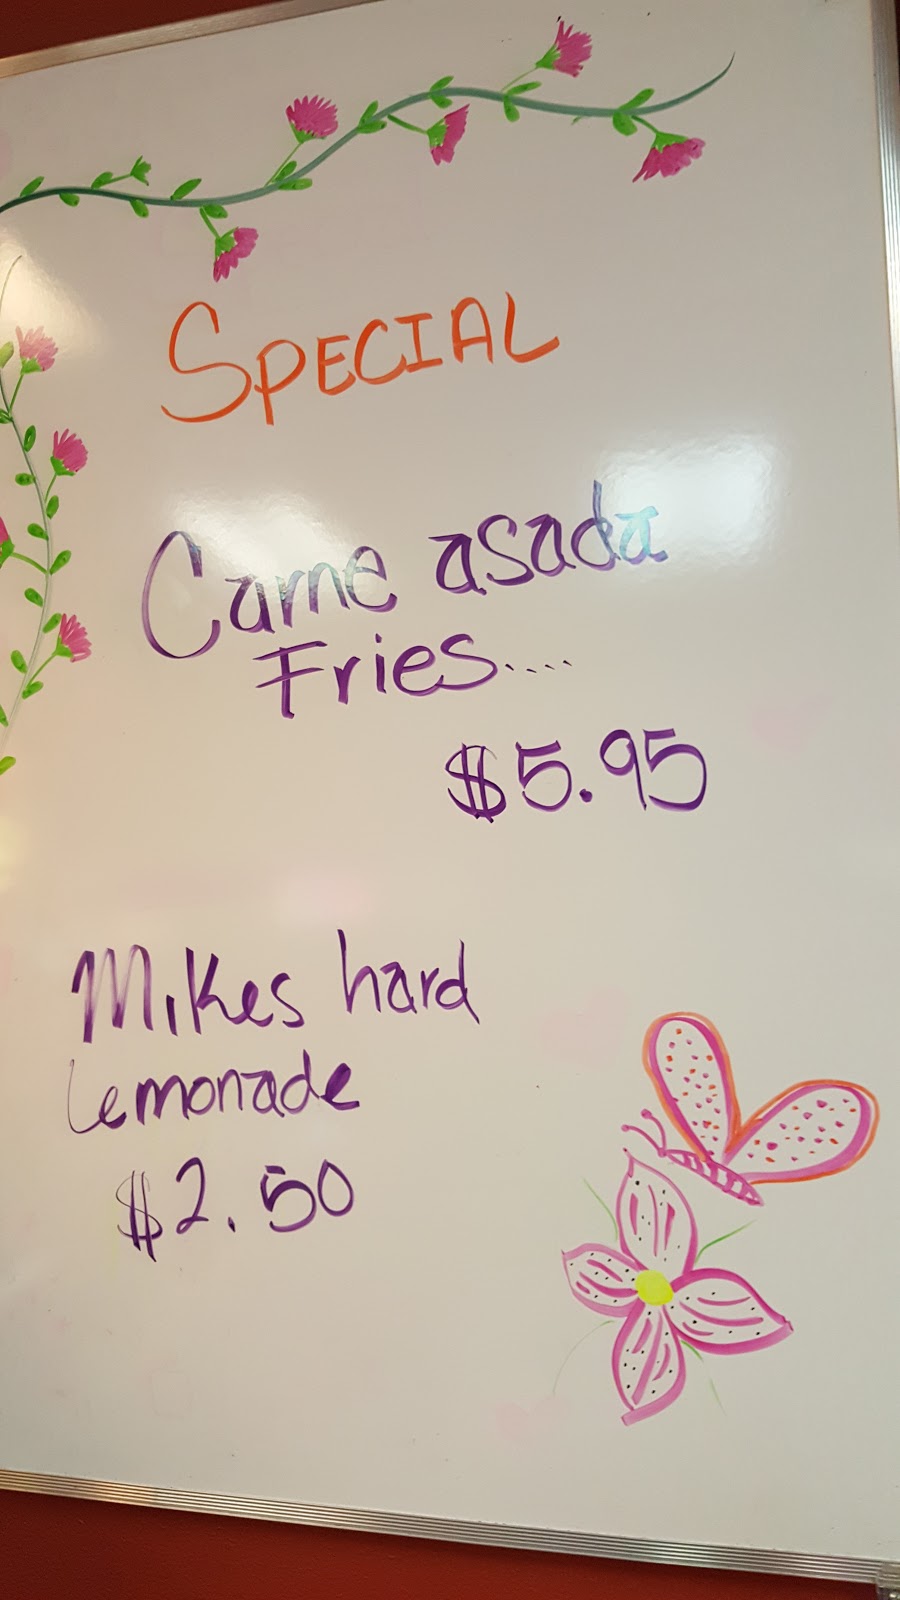 SPECIAL
Carne asada
Fries....
$5.95
Mikes hard
lemonade
$2.50